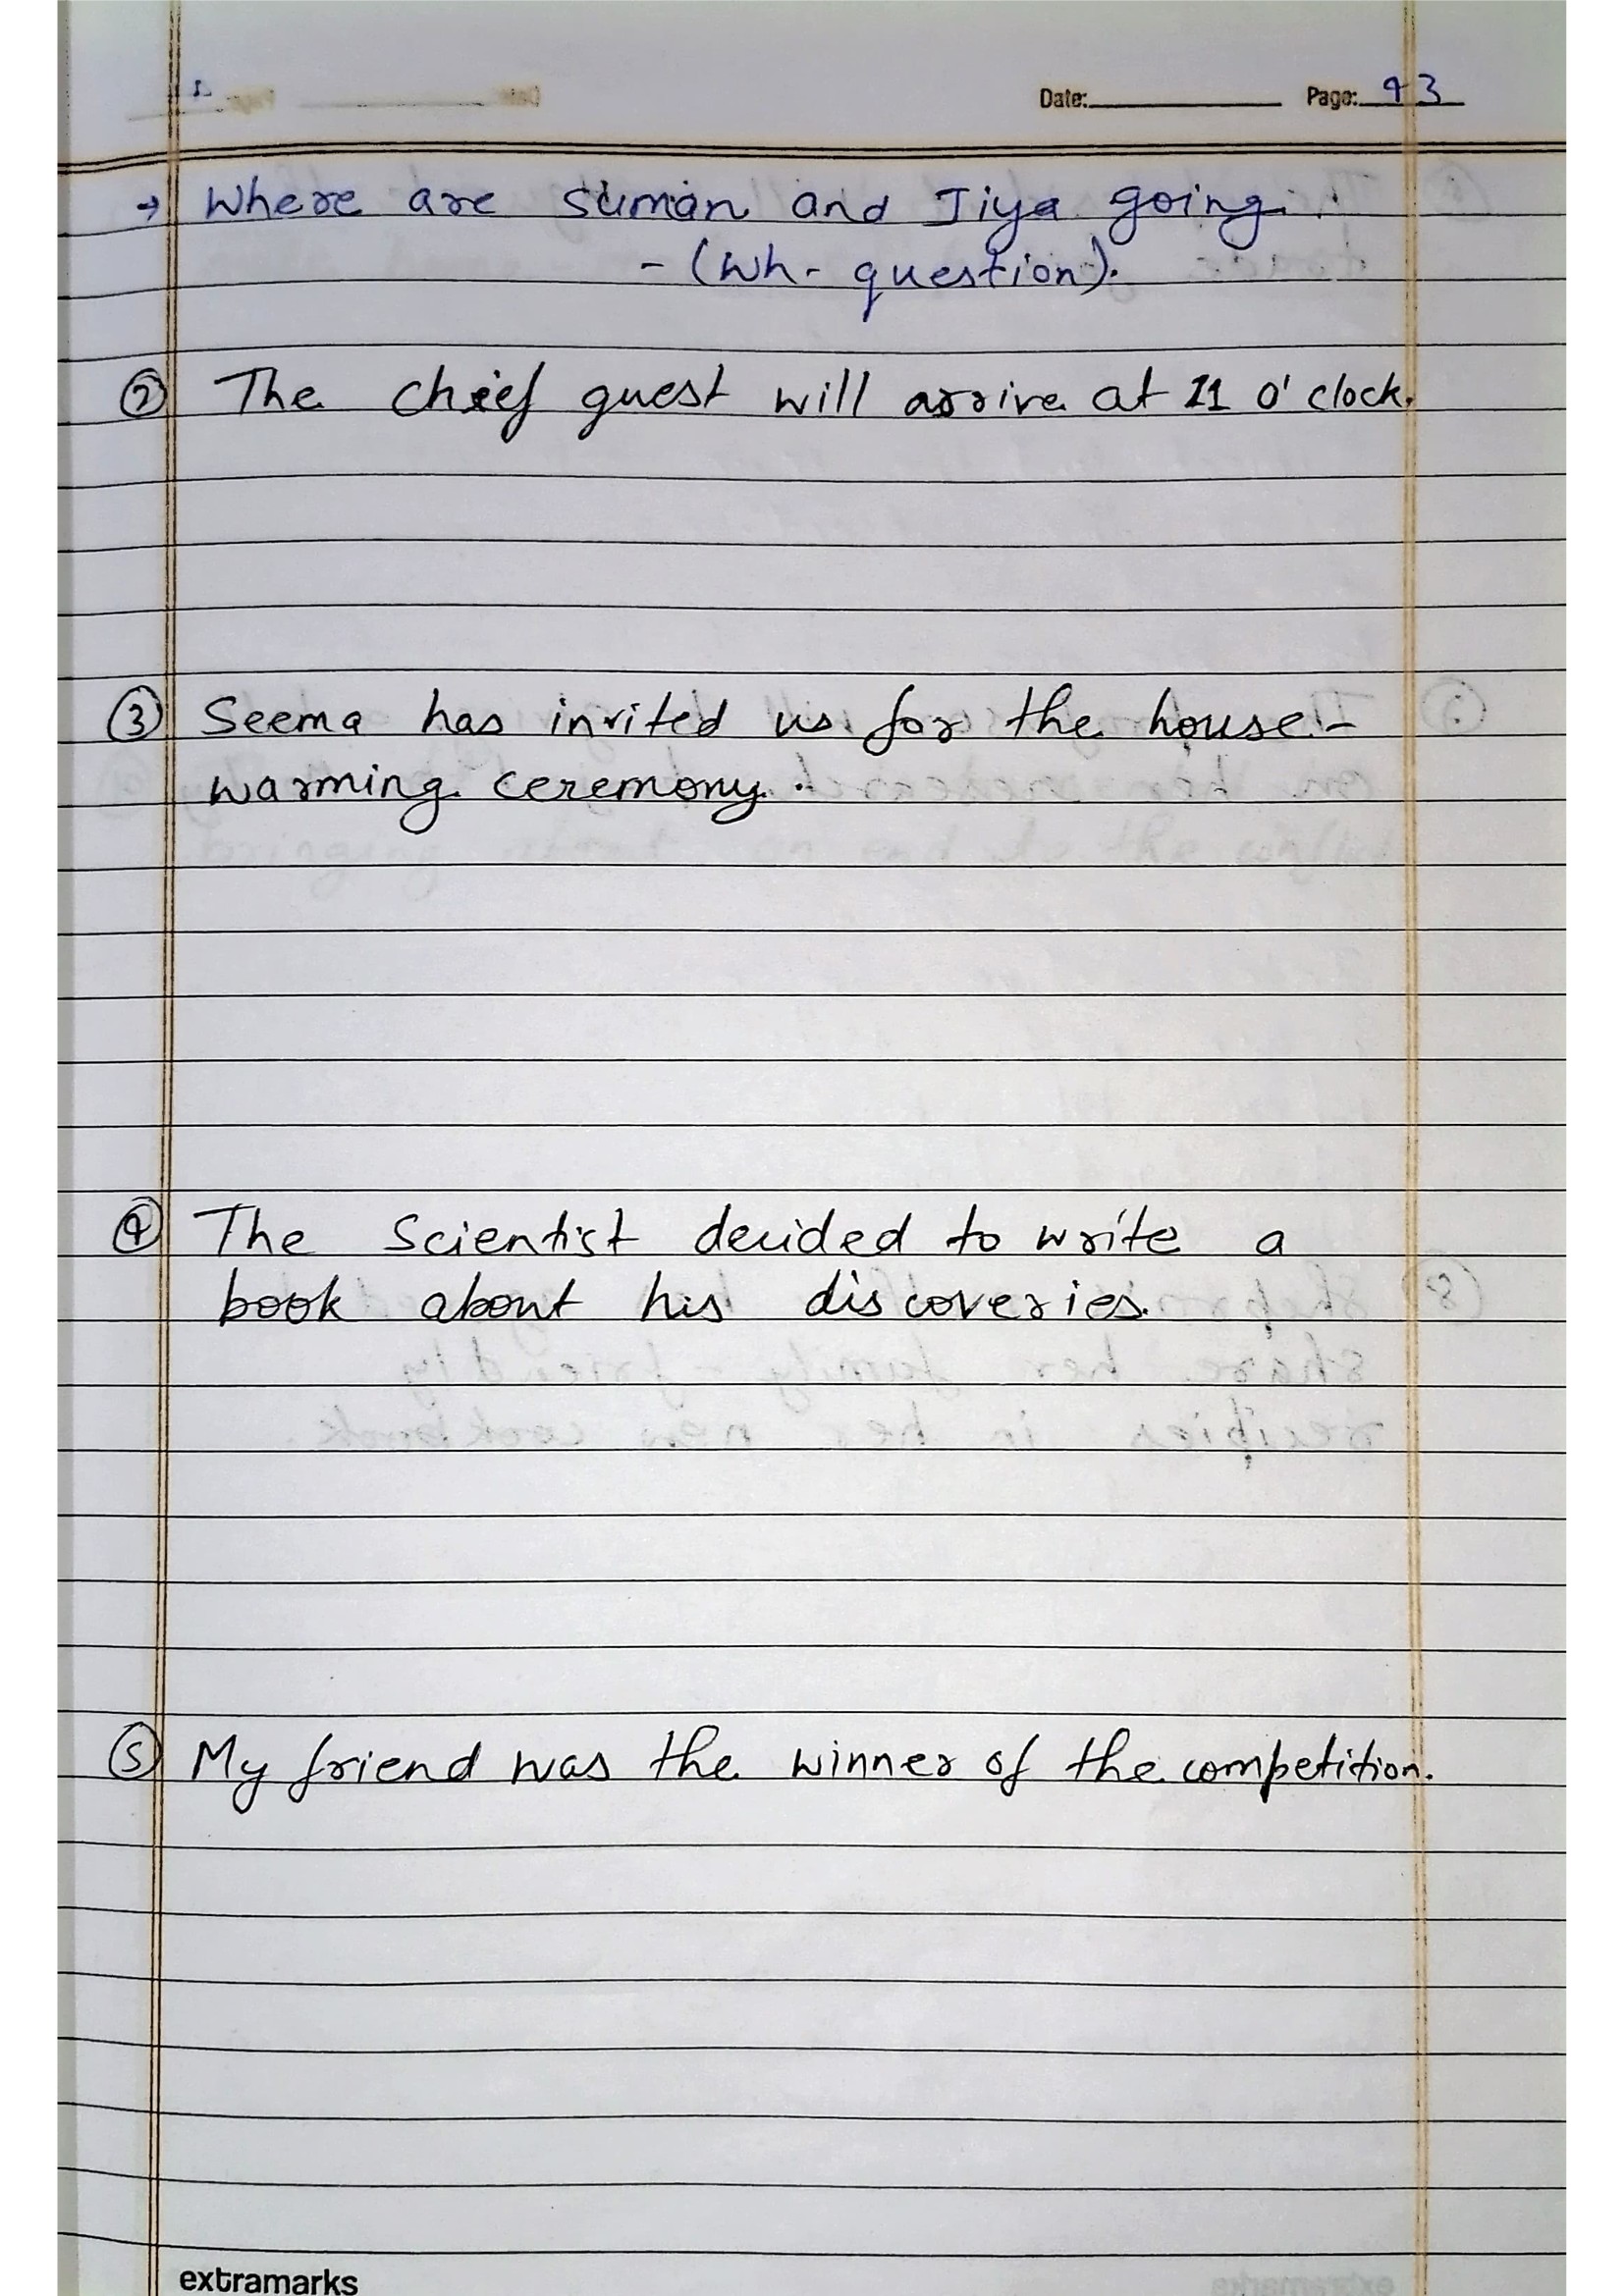 Date: Page: 93
→ Where are Suman and Jiya going.
- (Wh- question).
② The chief guest will arrive at 11 o'clock.
③ Seema has invited us for the house-
warming ceremony.
④ The Scientist decided to write a
book about his discoveries.
⑤ My friend was the winner of the competition.
extramarks